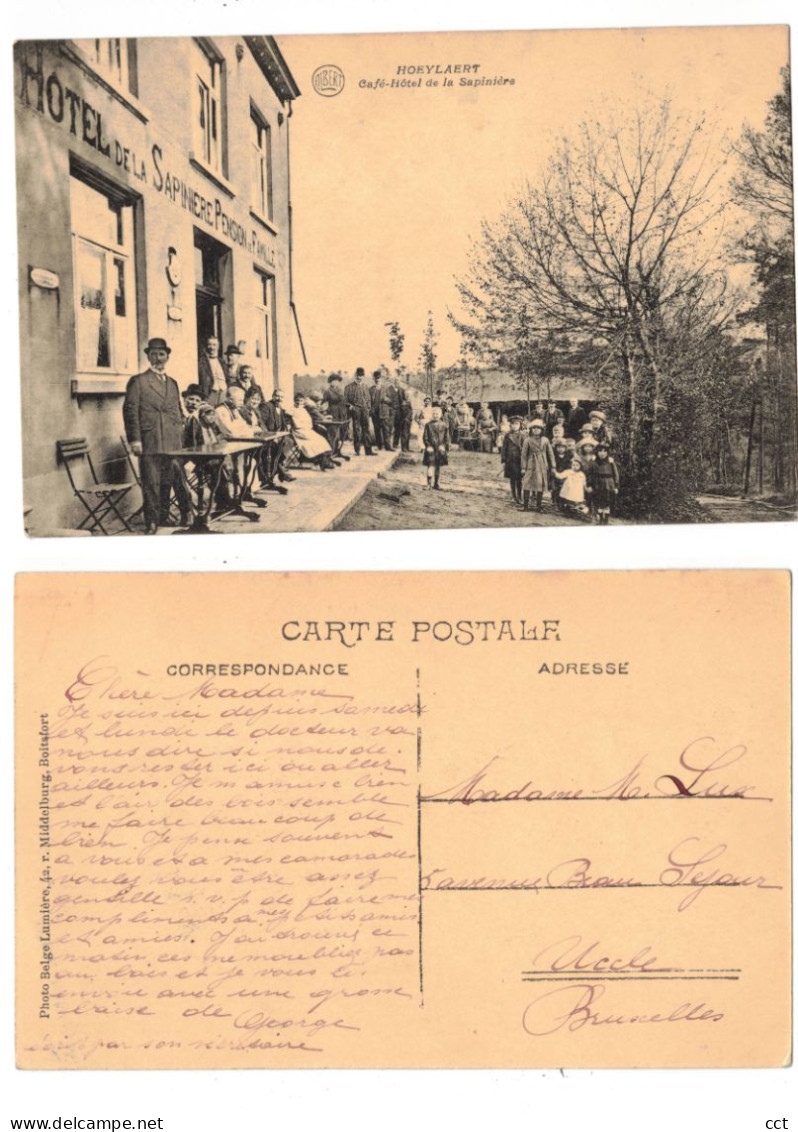 HOEYLAERT
ALBERT
Café-Hôtel de la Sapinière
HÔTEL DE LA SAPINIÈRE PENSION DE FAMILLE
CARTE POSTALE
CORRESPONDANCE
ADRESSE
Photo Belge Lumière, 42, r. Middelburg, Boitsfort
Chère Madame
Je suis ici depuis samedi
et lundi le docteur va
nous dire si nous de.
vons rester ici ou aller
ailleurs. Je m'amuse bien
et l'air, des bois semble
me faire beaucoup de
bien. Je pense souvent
a vous et a mes camarades
voulez vous être assez
gentille s.v.p de faire mes
compliments a mes petits amis
et amies. J'ai trouvé ce
matin ces
au bois et je vous les
envoie avec une grosse
baise de
George
écrit par son secrétaire
Madame M. Lux
5 avenue Beau Sejour
Uccle
Bruxelles
©DELCAMPE.NET
cct